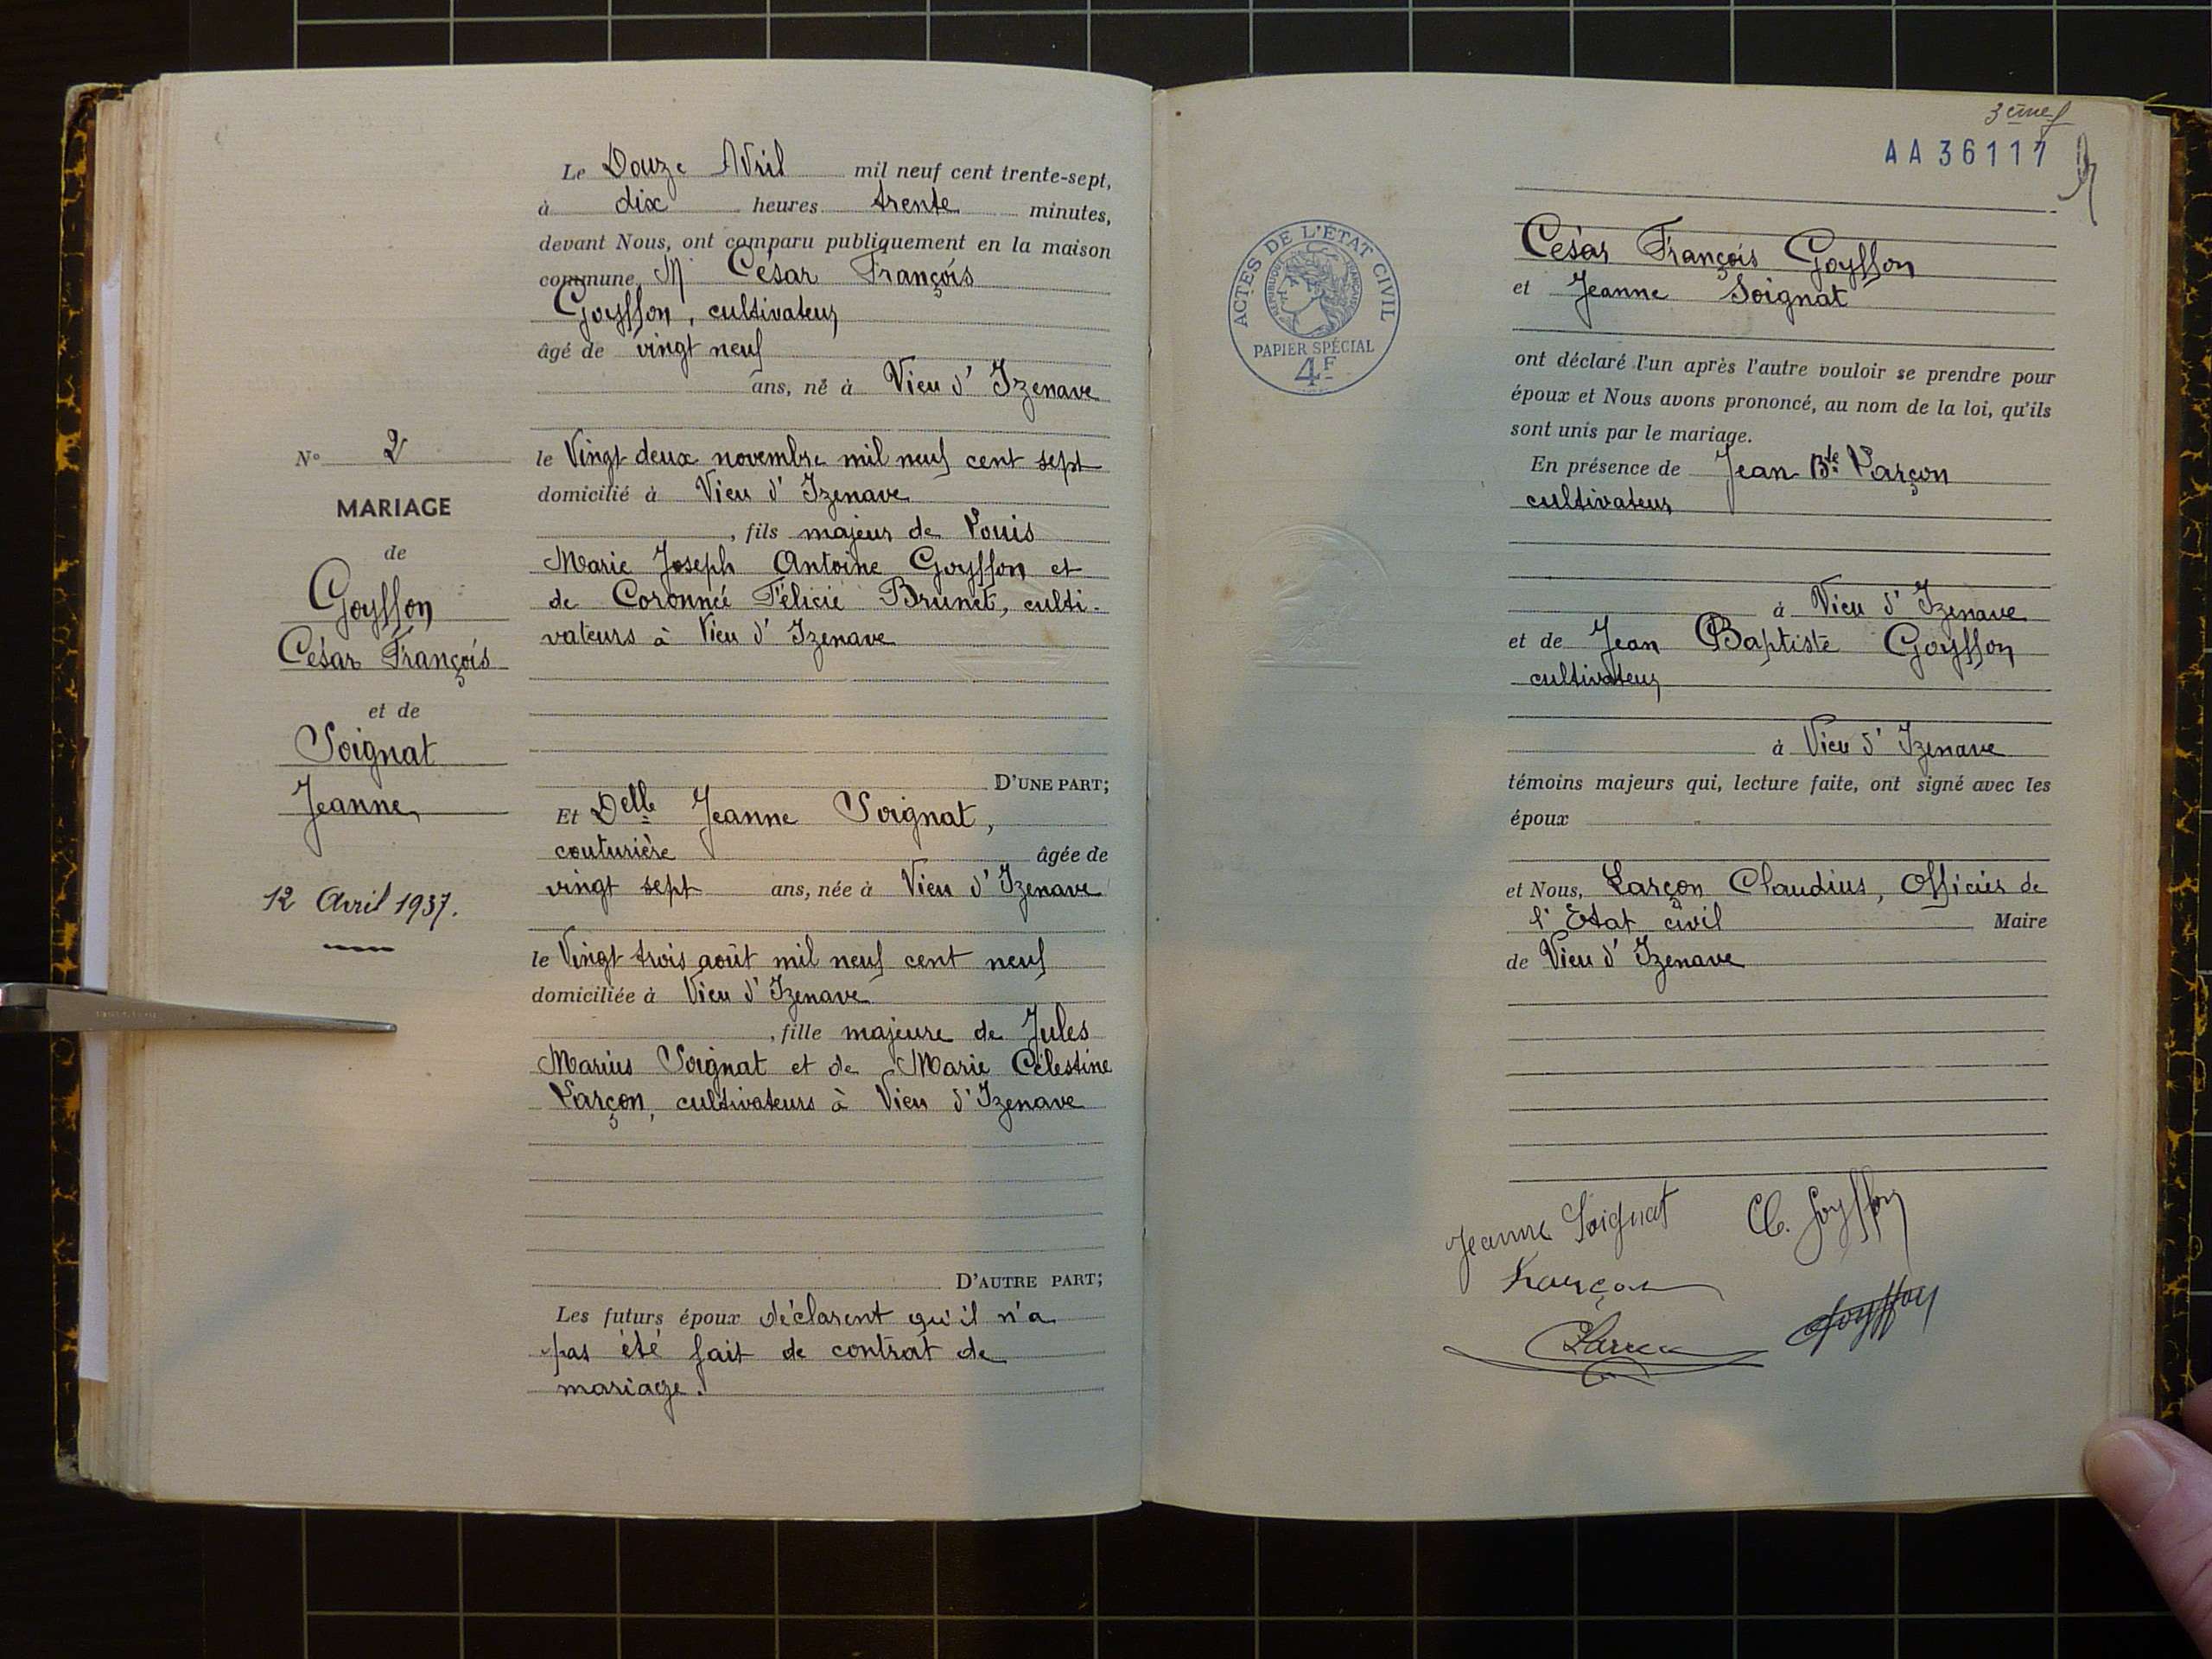 Le Douze Avril mil neuf cent trente-sept,
à dix heures trente minutes,
devant Nous, ont comparu publiquement en la maison
commune, M César François
Goyffon, cultivateur
âgé de vingt neuf
ans, né à Vieu d'Izenave
N° 2
le Vingt deux novembre mil neuf cent sept
domicilié à Vieu d'Izenave
MARIAGE
de
Goyffon
César François
et de
Soignat
Jeanne
12 Avril 1937.
, fils majeur de Louis
Marie Joseph Antoine Goyffon et
de Coronnée Félicie Brunet, culti-
vateurs à Vieu d'Izenave
D'UNE PART;
Et Delle Jeanne Soignat,
couturière âgée de
vingt sept ans, née à Vieu d'Izenave
le Vingt trois août mil neuf cent neuf
domiciliée à Vieu d'Izenave
, fille majeure de Jules
Marius Soignat et de Marie Célestine
Larçon, cultivateurs à Vieu d'Izenave
D'AUTRE PART;
Les futurs époux déclarent qu'il n'a
pas été fait de contrat de
mariage.
3ème f
AA 36117
ACTES DE L'ÉTAT CIVIL
RÉPUBLIQUE FRANÇAISE
PAPIER SPÉCIAL
4F
César François Goyffon
et Jeanne Soignat
ont déclaré l'un après l'autre vouloir se prendre pour
époux et Nous avons prononcé, au nom de la loi, qu'ils
sont unis par le mariage.
En présence de Jean Bte Larçon
cultivateur
à Vieu d'Izenave
et de Jean Baptiste Goyffon
cultivateur
à Vieu d'Izenave
témoins majeurs qui, lecture faite, ont signé avec les
époux
et Nous, Larçon Claudius, Officier de
l'Etat civil Maire
de Vieu d'Izenave
Jeanne Soignat
Goyffon
Larçon
Goyffon